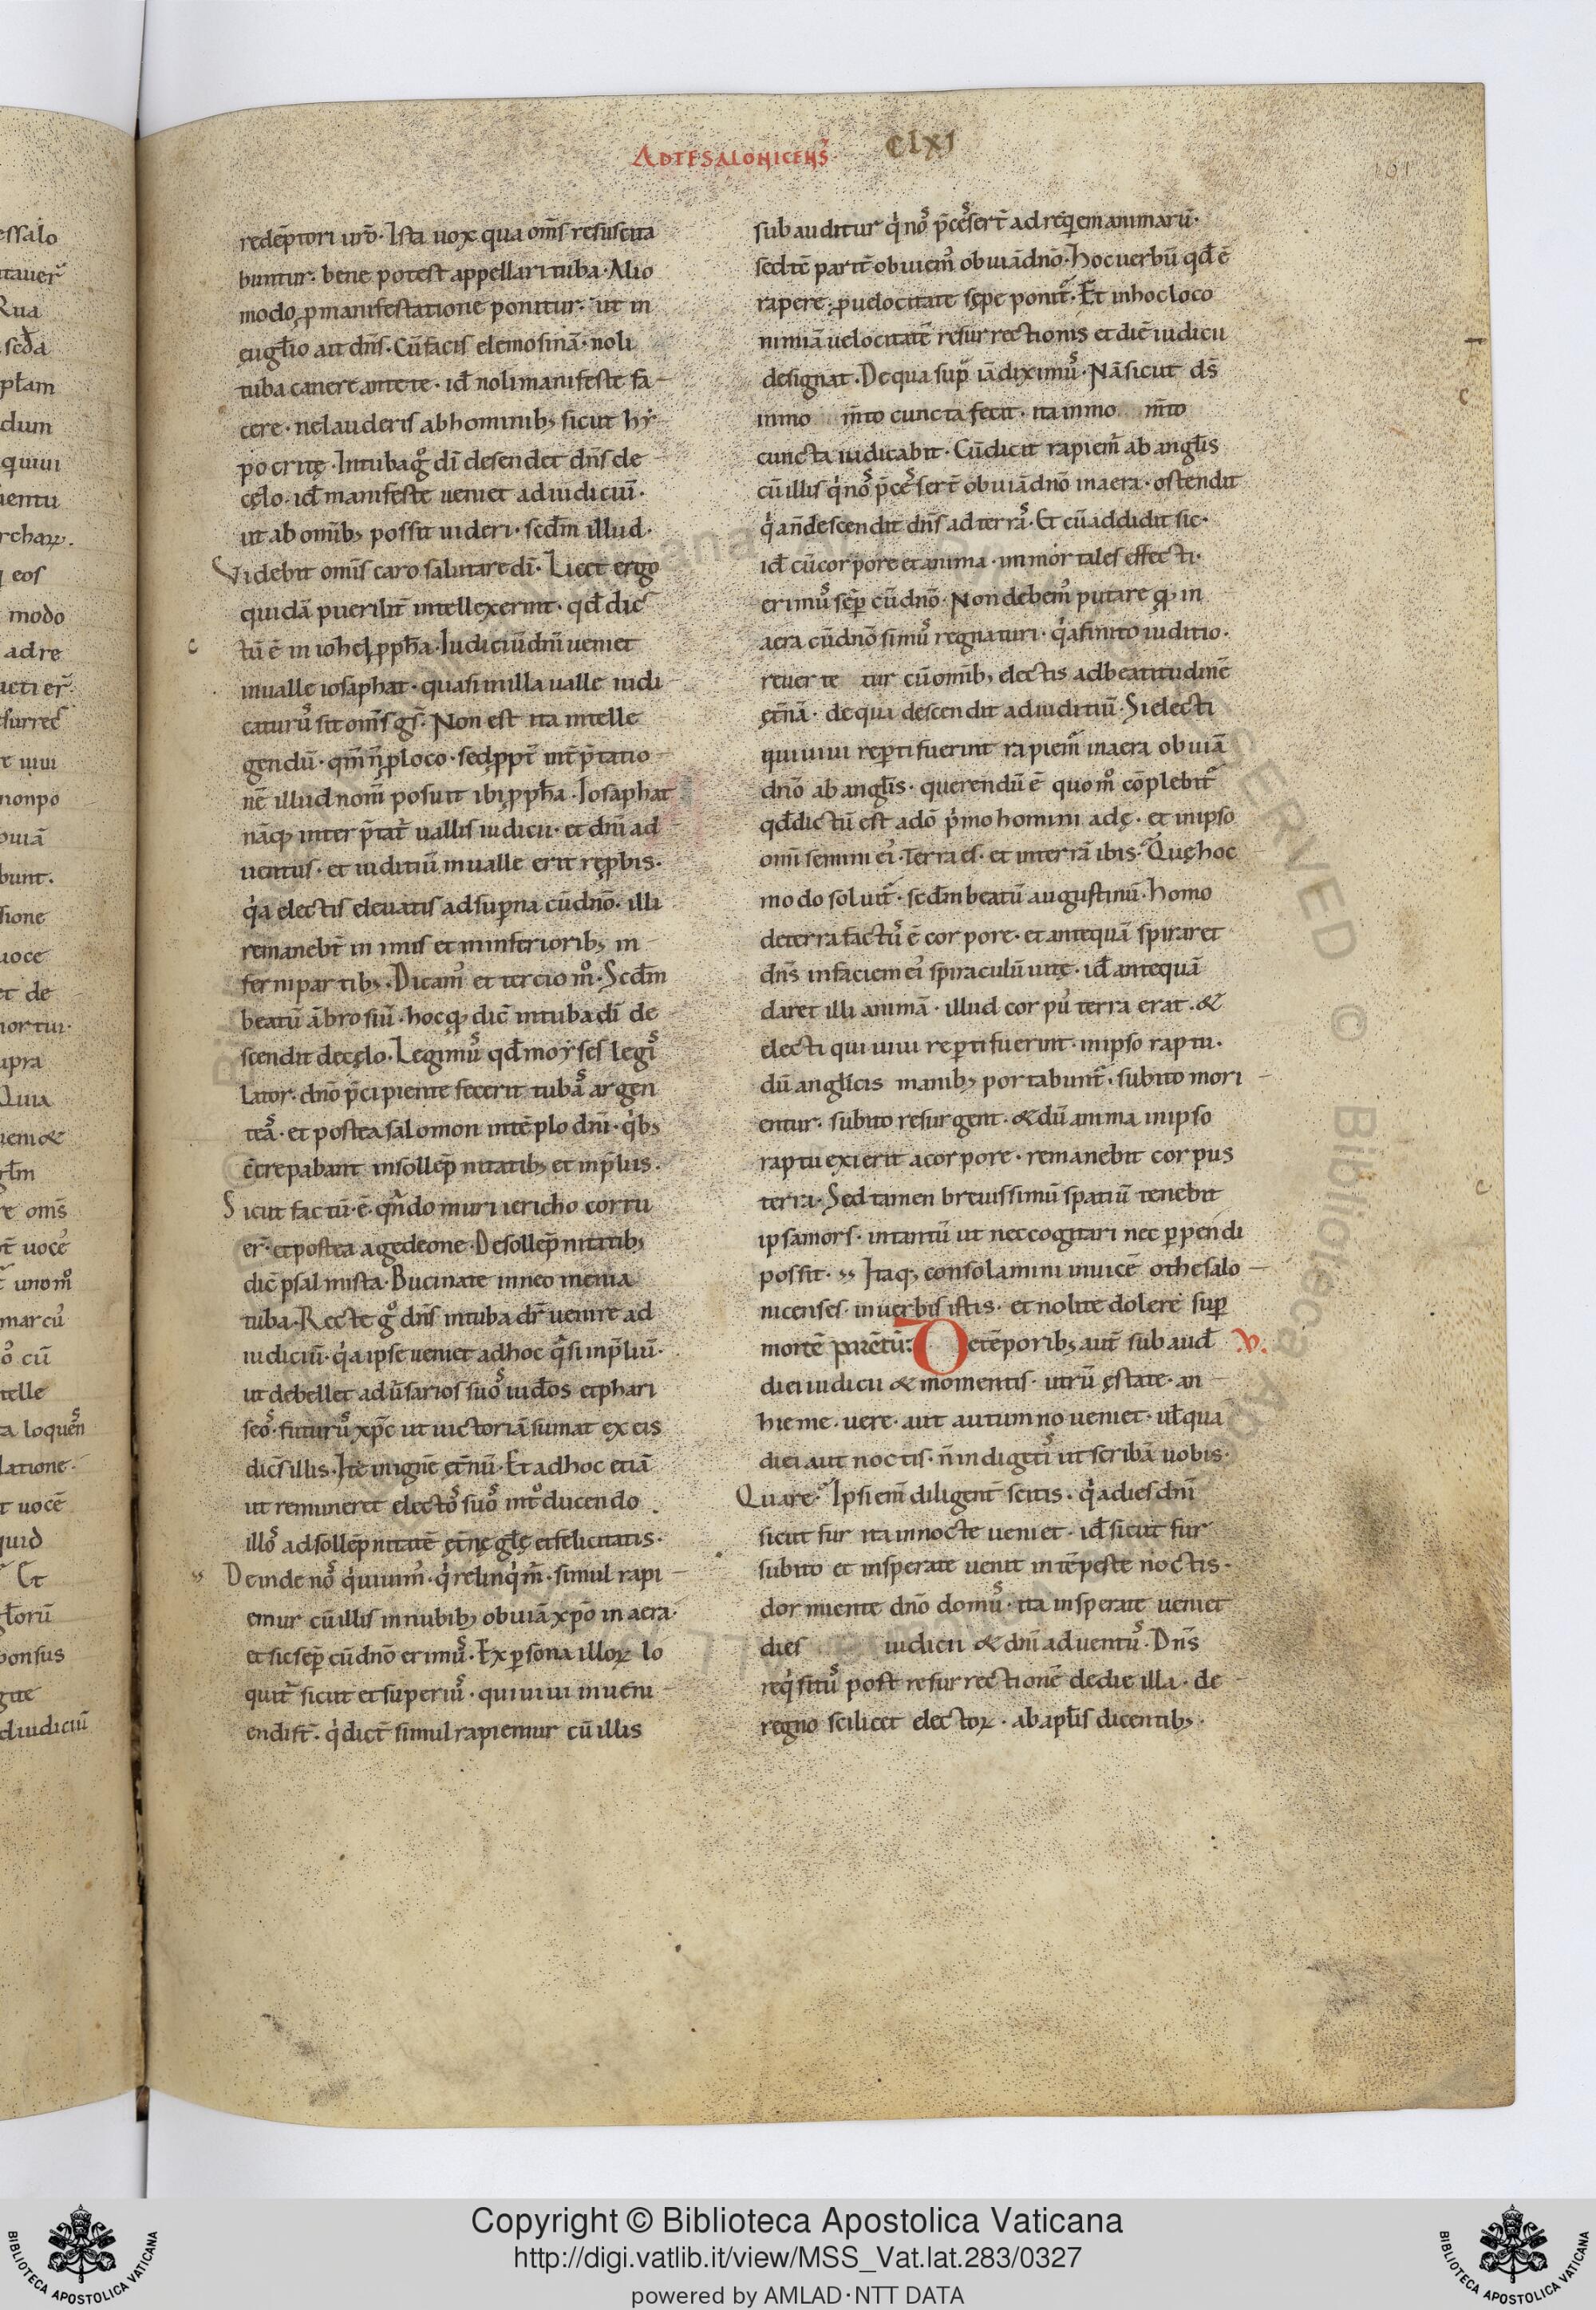 ADTESALONICENS᷒ CLXI
161
redēptori urō. Ista uox qua om̄s resuscita
buntur. bene potest appellari tuba. Alio
modo, p manifestatione ponitur. ut in
euḡlio ait dn̄s. Cū facis elemosinā. noli
tuba canere ante te. id̄ noli manifeste fa
cere. ne lauderis ab hominib; sicut hy
pocritę. In tuba gͦ dī descendet dn̄s de
cęlo. id̄ manifeste ueniet ad iudiciū.
ut ab omīb; possit uideri. scd̄m illud.
Videbit om̄is caro salutare dī. Licet ergo
quidā pueriliter intellexerint. qd̄ dic
tū ē in iohel, pph̄a. Iudiciū dn̄i ueniet
in ualle iosaphat. quasi in illa ualle iudi
caturus sit om̄s gs̄. Non est ita intelle
gendū. qm̄ n̄ p loco. sed ppt̄ int̄p̄tatio
nē illud nom̄ posuit ibi, pph̄a. Iosaphat
nāq; interp̄tat̄ uallis iudicii. et dn̄i ad
uentus. et iuditiū in ualle erit rep̱bis.
q̇a electis eleuatis ad sup̱na cū dnō. illi
remanebt̄ in imis et in inferiorib; in
ferni partib;. Dicam᷒ et tercio mͦ. Scd̄m
beatū ābrosiū. hocq; dic̄ in tuba dī de
scendit de cęlo. Legim᷒ qd̄ moyses legis
lator. dnō p̄cipiente fecerit tubas argen
teas. et postea salomon in tēplo dn̄i. q̇b;
c̄crepabant in sollēpnitatib; et in p̄liis.
Sicut factū. ē. qn̄do muri iericho corru
er̄. et postea a gedeone. De sollēpnitatib;
dic̄ psalmista. Bucinate in neomenia
tuba. Recte gͦ dn̄s in tuba dr̄ uenire ad
iudiciū. q̇a ipse ueniet ad hoc q̄si in p̄liū.
ut debellet adūsarios suos iudęos et phari
seos. futurus xp̄c ut uictoriā sumat ex eis
dicēs illis. Ite in ignē etn̄ū. Et ad hoc etiā
ut remuneret electos suos int̊ducendo
illos ad sollēpnitatē etn̄ę gl̄ę et felicitatis.
Deinde nos q̇ uiuim᷒. q̇ relinq̇m̄. simul rapi
emur cū illis in nubib; obuiā xpō in aera.
et sic sēp cū dnō erimus. Ex p̱sona illoꝝ lo
quit̄ sicut et superius. qui uiui inueni
endi st̄. q̇ dict̄ simul rapiemur cū illis
subauditur q̇ nos p̄cessert̄ ad requiem animarū.
rapere, p uelocitate sępe ponit̄. Et in hoc loco
nimiā uelocitatē resurrectionis et diē iudicii
designat. De qua sup̄ iā diximus. Nā sicut ds̄
in mo m̄to cuncta fecit. ita in mo m̄to
cuncta iudicabit. Cū dicit rapiem̄ ab angl̄is
cū illis q̇ nos p̄cessert̄ obuiā dnō in aera. ostendit
q̇ an̄ descendit dn̄s ad terras. Et cū addidit sic.
id̄ cū corpore et anima. immortales effecti.
erimus sēp cū dnō. Non debem᷒ putare qđ in
aera cū dnō simus regnaturi. q̇a finito iuditio.
reuerte tur cū omīb; electis ad beatitudinē
ętn̄ā. de qua descendit ad iuditiū. Si electi
qui uiui rep̱ti fuerint rapiem̄ in aera obuiā
dnō ab angl̄is. querendū ē quomͦ cōplebit̄
qd̄ dictū est a dō ṗmo homini adę. et in ipso
omī semini ei᷒. Terra es. et in terrā ibis. Quę hoc
modo soluit̄. scd̄m beatū augustinū. Homo
de terra factus ē corpore. et antequā spiraret
dn̄s in faciem ei᷒ spiraculū uitę. id̄ antequā
daret illi animā. illud corp᷒ terra erat. &
electi qui uiui rep̱ti fuerint. in ipso raptu.
dū angl̄icis manib; portabunt̄. subito mori
entur. subito resurgent. & dū anima in ipso
raptu exierit a corpore. remanebit corpus
terra. Sed tamen breuissimū spatiū tenebit
ipsa mors. in tantū ut nec cogitari nec p̱pendi
possit. Itaq; consolamini inuicē o thesalo
nicenses. in uerbis istis. et nolite dolere sup̱
mortē parētū. De tēporib; aut̄ subaud̄ V.
diei iudicii & momentis. utrū ęstate. an
hieme. uere. aut autumno ueniet. ul̄ qua
diei aut noctis. n̄ indigetis ut scribā uobis.
Quare. Ipsi em̄ diligent̄ scitis. q̇a dies dn̄i
sicut fur ita in nocte ueniet. id̄ sicut fur
subito et insperate uenit intēpeste noctis.
dormiente dnō domus. ita insperate ueniet
dies iudicii & dn̄i aduentus. Dn̄s
req̇situs post resurrectionē de die illa. de
regno scilicet electoꝝ. ab apl̄is dicentib;.
Copyright © Biblioteca Apostolica Vaticana
http://digi.vatlib.it/view/MSS_Vat.lat.283/0327
powered by AMLAD·NTT DATA
BIBLIOTECA APOSTOLICA VATICANA
BIBLIOTECA APOSTOLICA VATICANA